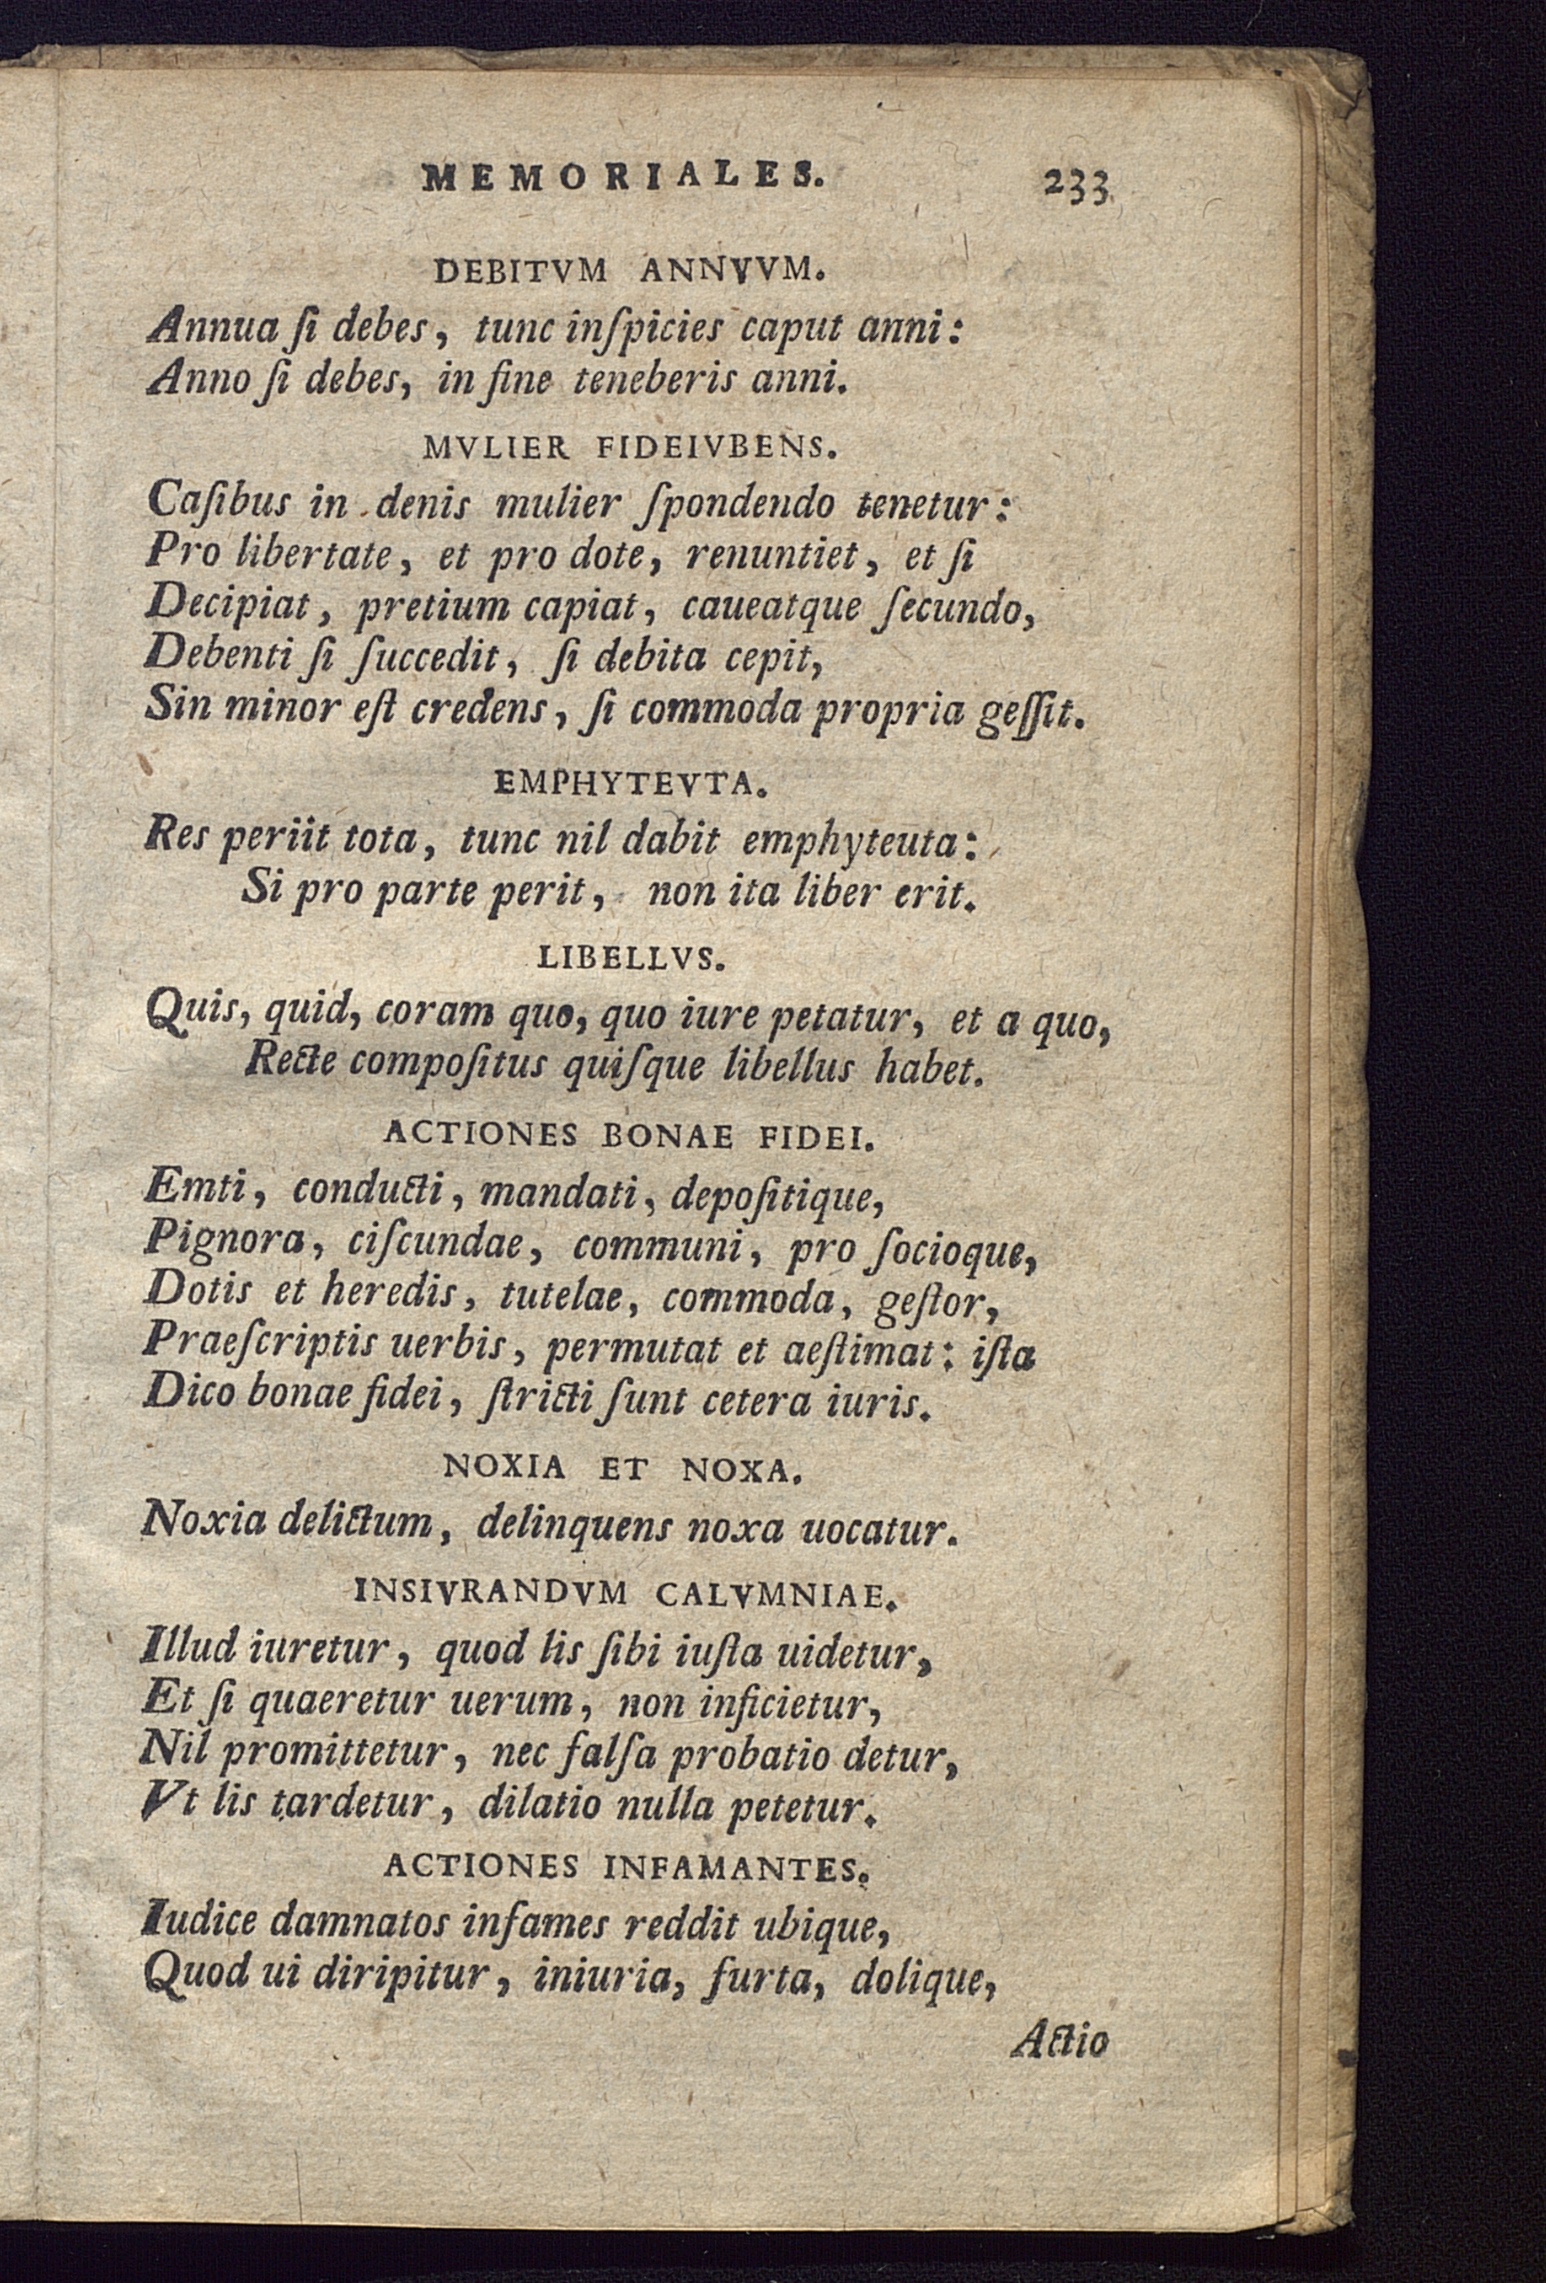 MEMORIALES. 233
DEBITVM ANNVVM.
Annua ſi debes, tunc inſpicies caput anni:
Anno ſi debes, in fine teneberis anni.
MVLIER FIDEIVBENS.
Caſibus in denis mulier ſpondendo tenetur:
Pro libertate, et pro dote, renuntiet, et ſi
Decipiat, pretium capiat, caueatque ſecundo,
Debenti ſi ſuccedit, ſi debita cepit,
Sin minor eſt credens, ſi commoda propria geſſit.
EMPHYTEVTA.
Res periit tota, tunc nil dabit emphyteuta:
Si pro parte perit, non ita liber erit.
LIBELLVS.
Quis, quid, coram quo, quo iure petatur, et a quo,
Recte compoſitus quiſque libellus habet.
ACTIONES BONAE FIDEI.
Emti, conducti, mandati, depoſitique,
Pignora, ciſcundae, communi, pro ſocioque,
Dotis et heredis, tutelae, commoda, geſtor,
Praeſcriptis uerbis, permutat et aeſtimat: iſta
Dico bonae fidei, ſtricti ſunt cetera iuris.
NOXIA ET NOXA.
Noxia delictum, delinquens noxa uocatur.
INSIVRANDVM CALVMNIAE.
Illud iuretur, quod lis ſibi iuſta uidetur,
Et ſi quaeretur uerum, non inficietur,
Nil promittetur, nec falſa probatio detur,
Vt lis tardetur, dilatio nulla petetur.
ACTIONES INFAMANTES.
Iudice damnatos infames reddit ubique,
Quod ui diripitur, iniuria, furta, dolique,
Actio